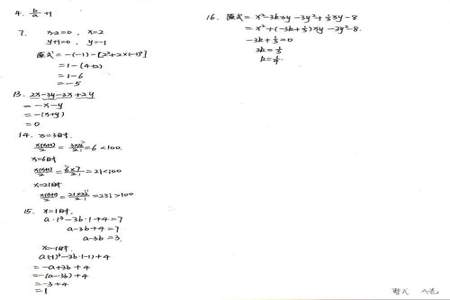 4. b/a +1
7. x-2=0, x=2
y+1=0, y=-1
原式=-(-1)-[2²+2×(-1)²]
=1-(4+2)
=1-6
=-5
13. 2x-3y-2x+2y
=-x-y
=-(x+y)
=0
14. x=3时,
x(x+1)/2 = 3×4/2 = 6 <100
x=6时
x(x+1)/2 = 6×7/2 = 21<100
x=21时
x(x+1)/2 = 21×22/2 = 231>100
15. x=1时,
a·1³-3b·1+4=7
a-3b+4=7
a-3b=3
x=-1时,
a(-1)³-3b·(-1)+4
=-a+3b+4
=-(a-3b)+4
=-3+4
=1
16. 原式= x²-3kxy-3y²+⅓xy-8
= x²+(-3k+⅓)xy-3y²-8
-3k+⅓=0
3k=⅓
k=